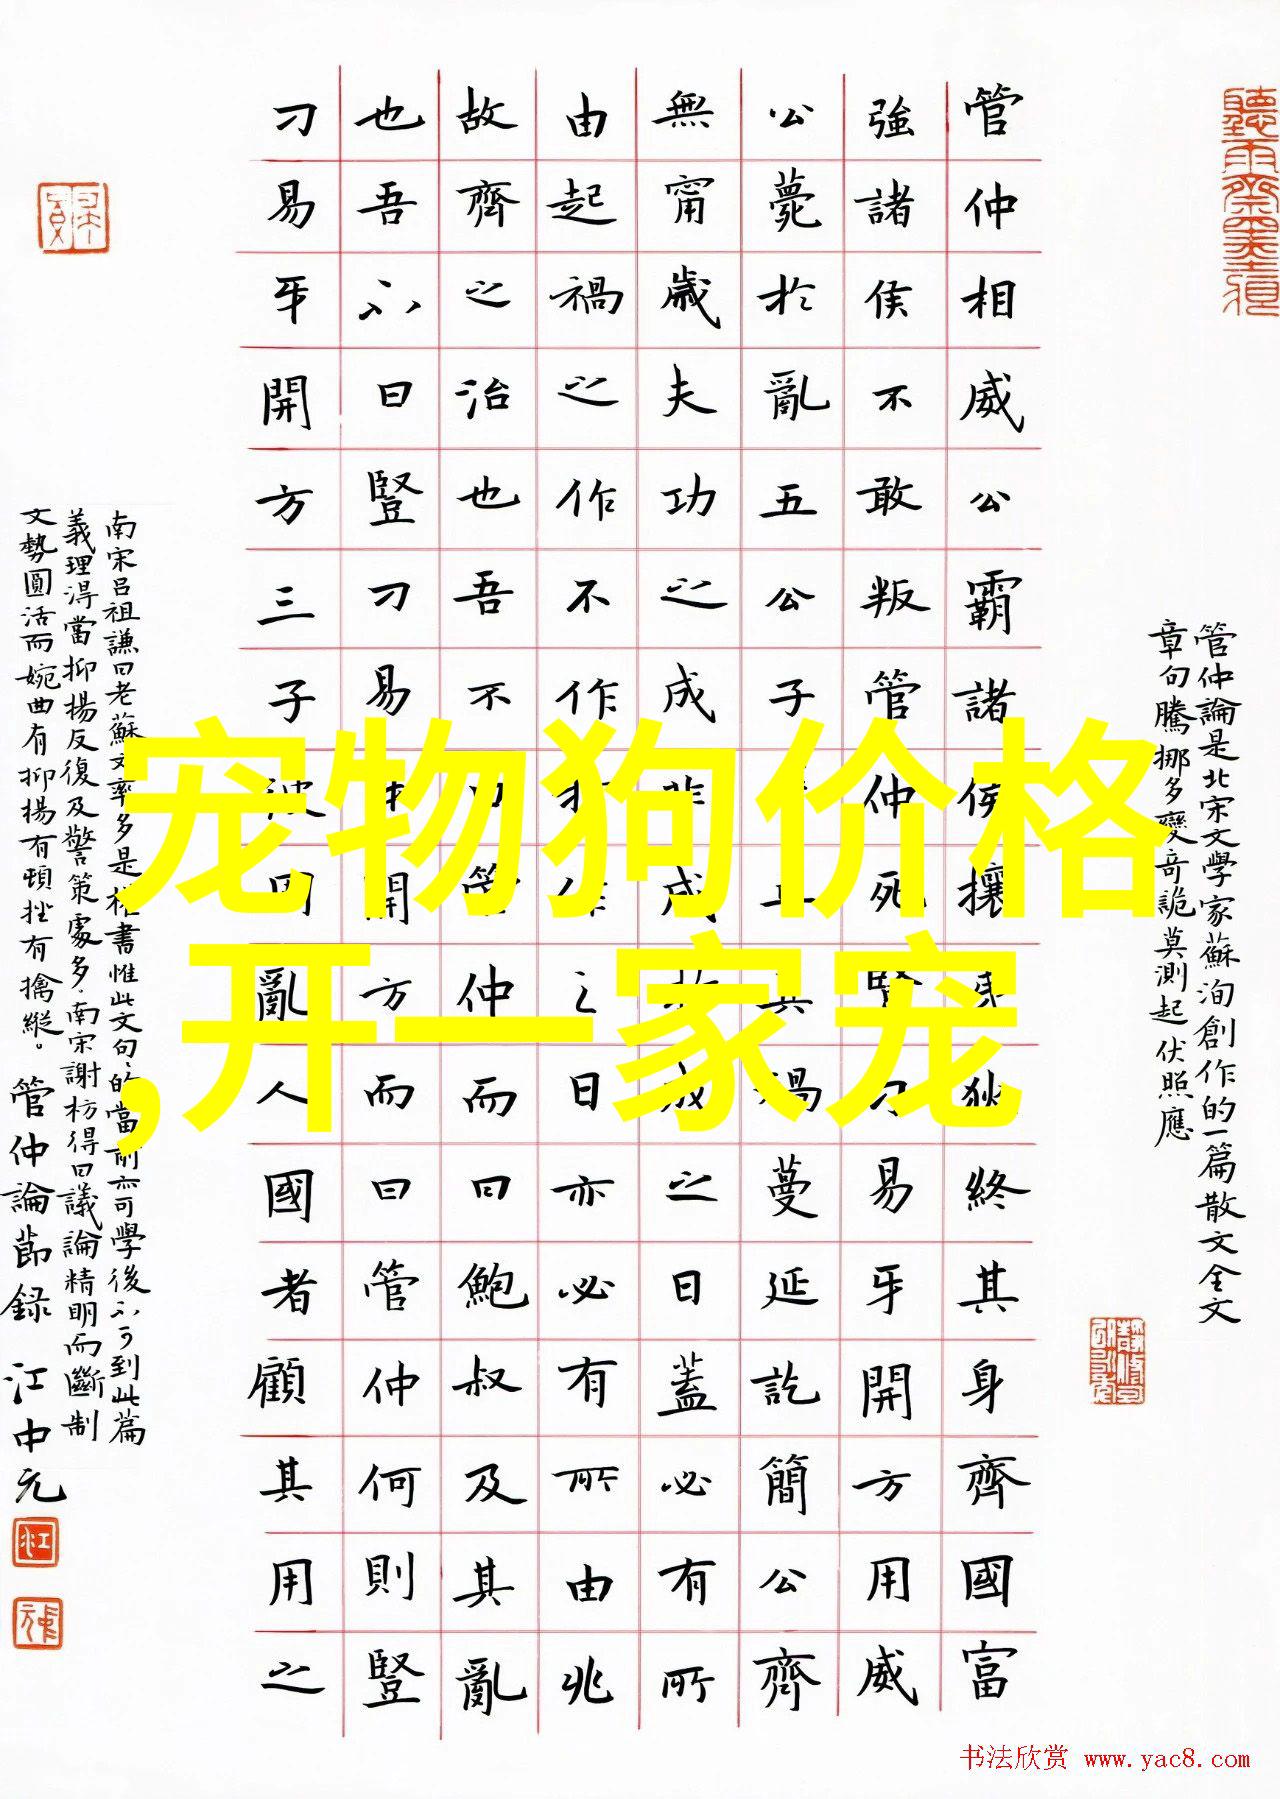 管仲論是北宋文學家蘇洵創作的一篇散文全文
章句騰挪多變奇詭莫測起伏照應
管仲相威公霸諸侯攘夷狄終其身齊國富
強諸侯不敢叛管仲死豎刁易牙開方用威
公薨於亂五公子爭立其禍蔓延訖簡公齊
無甯歲夫功之成非成於成之日蓋必有所
由起禍之作不作於作之日亦必有所由兆
故齊之治也吾不曰管仲而曰鮑叔及其亂
也吾不曰豎刁易牙開方而曰管仲何則豎
刁易牙開方三子彼固亂人國者顧其用之
南宋呂祖謙曰老蘇文率多是權書惟此文句句的當前亦可學後不可到此篇
義理淂當抑揚反復及警策處多南宋謝枋得曰議論精明而斷制
文勢圓活而婉曲有抑揚有頓挫有擒縱。管仲論節録 江中元
宠物狗价格
,开一家宠
书法欣赏 www.yac8.com